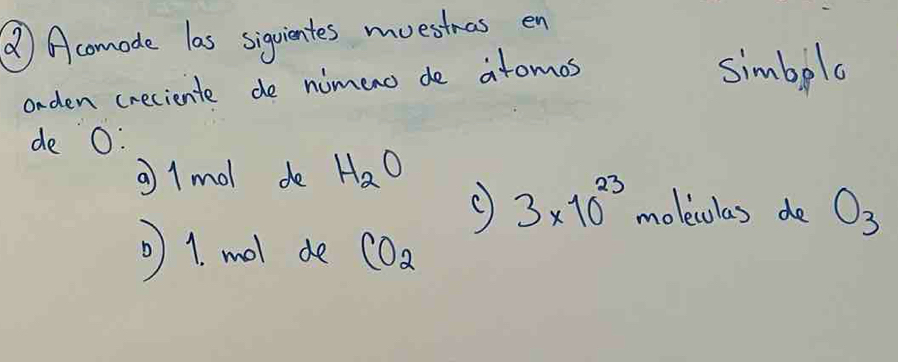 ② Acomode las siguientes muestras en
orden creciente de número de átomos
de O:
simbolo
a) 1 mol de H₂O
b) 1. mol de CO₂
c) 3x10²³ moléculas de O₃